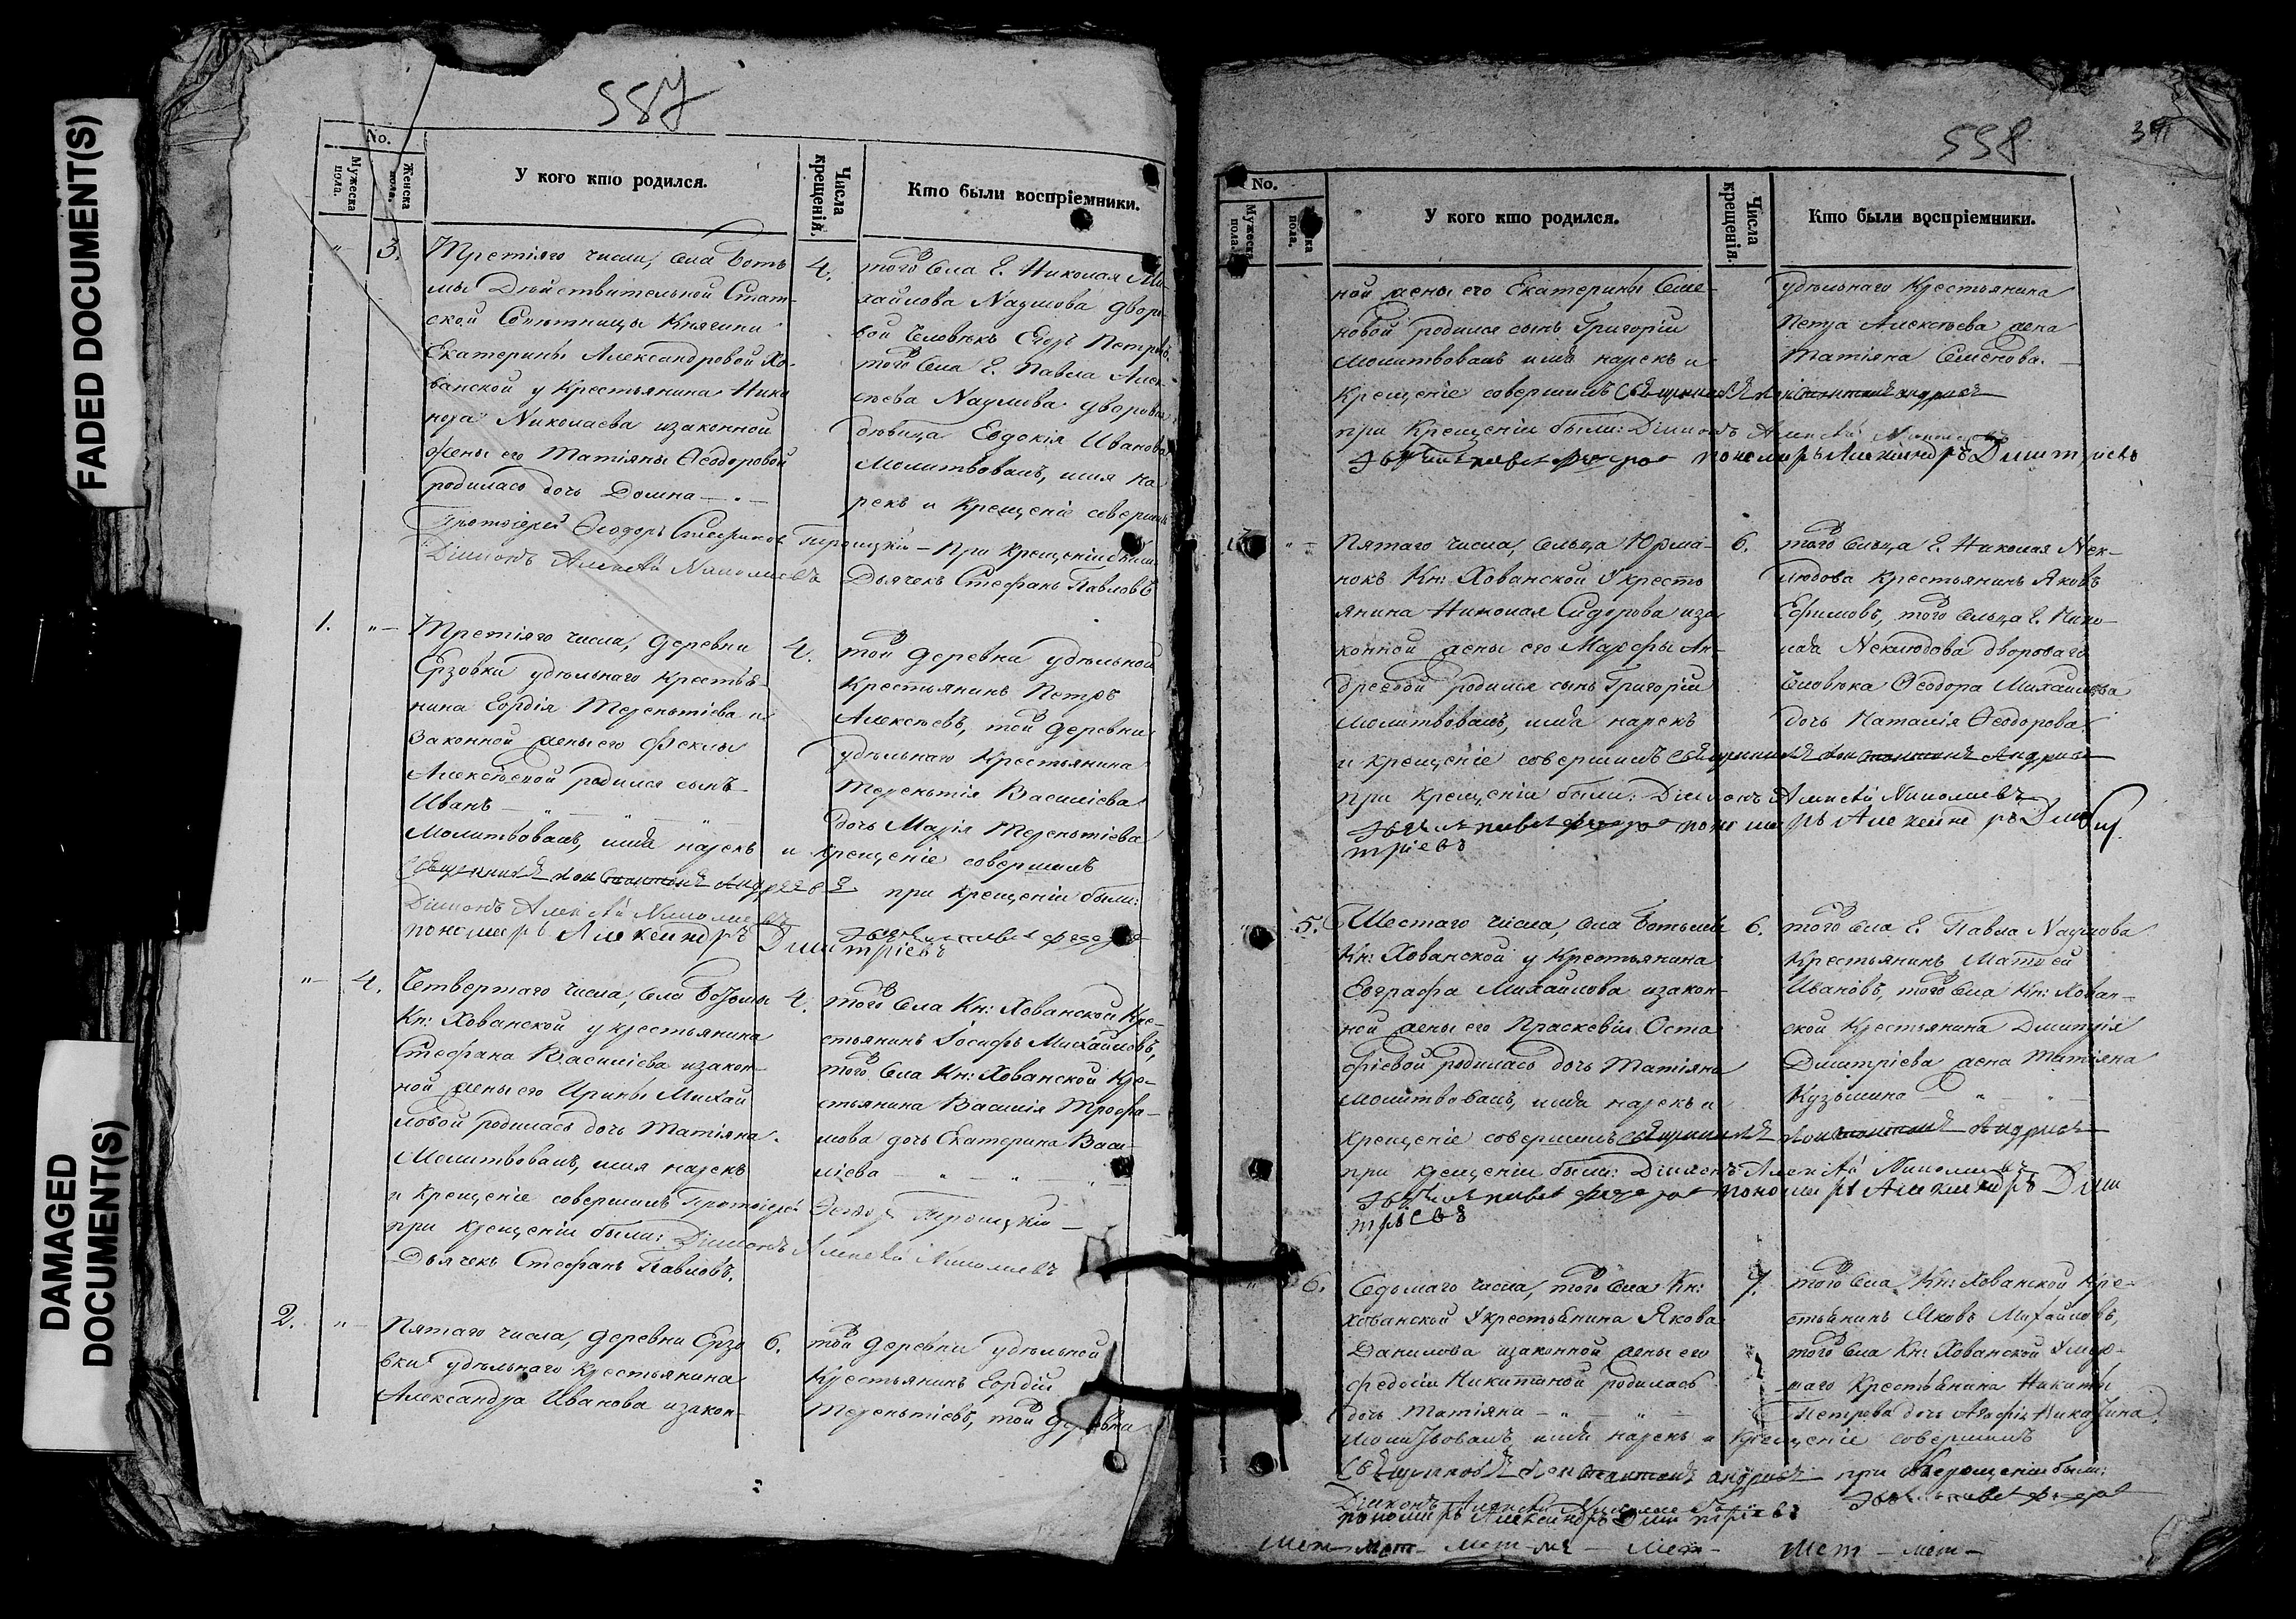 FADED DOCUMENT(S)
DAMAGED
DOCUMENT(S)
557
No.
Мужеска пола.
Женска пола.
У кого кто родился.
Числа крещенія.
Кто были воспріемники.
" 3.
Третіяго числа, села Боть
мы Дѣйствительной Стат-
ской Совѣтницы Княгини
Екатерины Александровой Хо-
ванской у Крестьянина Ника
нора Николаева изаконной
жены его Татіяны Ѳеодоровой
родилась дочь Домна
Протоіерей Ѳеодоръ Троицкій - При Крещеніи были
Діаконъ Алексѣй Николаевъ
4.
того села Г. Николая Ми-
хайлова Наумова дворо
вой Человѣкъ Егоръ Петровъ
того села Г. Павла Алек
сѣева Наумова дворовая
дѣвица Евдокія Иванова
Молитвовалъ, имя на
рекъ и Крещеніе соверши
Дьячекъ Стефанъ Павловъ
1. "
Третіяго числа, деревни
Ерзовки удѣльнаго крестья-
нина Гордія Терентіева и
законной жены его Феклы
Алексѣевой родился сынъ
Иванъ
Молитвовалъ, имя нарекъ и Крещеніе совершилъ
Священникъ Константинъ Андреевъ при Крещеніи были:
Діаконъ Алексѣй Николаевъ
пономарь Александръ Дмитріевъ
4.
той деревни удѣльной
Крестьянинъ Петръ
Алексѣевъ, той деревни
удѣльнаго Крестьянина
Терентія Василіева
дочь Марія Терентіева
" 4.
Четвертаго числа, села Ботьмы
Кн: Хованской у крестьянина
Стефана Василіева изакон-
ной жены его Ирины Михай
ловой родилась дочь Татіяна.
Молитвовалъ, имя нарекъ
и Крещеніе совершилъ Протоіерей Ѳеодоръ Троицкій
при крещеніи были: Діаконъ Алексѣй Николаевъ
Дьячекъ Стефанъ Павловъ.
4.
того села Кн: Хованской Кре-
стьянинъ Іосифъ Михайловъ,
того села Кн: Хованской Кре-
стьянина Василія Трофи-
мова дочь Екатерина Васи-
ліева
2. "
Пятаго числа, деревни Ерзо
вки удѣльнаго крестьянина
Александра Иванова изакон-
6.
той деревни удѣльной
Крестьянинъ Гордій
Терентіевъ, той деревни
558
No.
Мужеска пола.
пола.
У кого кто родился.
Числа крещенія.
Кто были воспріемники.
ной жены его Екатерины Семе-
новой родился сынъ Григорій
Молитвовалъ имя нарекъ и
Крещеніе совершилъ Священникъ Константинъ Андреевъ
при Крещеніи были: Діаконъ Алексѣй Николаевъ
пономарь Александръ Дмитріевъ
удѣльнаго Крестьянина
Петра Алексѣева жена
Татіяна Семенова.
Пятаго числа, сельца Юрма-
нокъ Кн: Хованской у кресть
янина Николая Сидорова иза
конной жены его Марфы Ан-
дреевой родился сынъ Григорій
Молитвовалъ, имя нарекъ
и крещеніе совершилъ Священникъ Константинъ Андреевъ
при Крещеніи были: Діаконъ Алексѣй Николаевъ
пономарь Александръ Дми
тріевъ
6.
того сельца Г. Николая Нек-
людова Крестьянинъ Яковъ
Ефимовъ, того сельца Г. Нико-
лая Неклюдова двороваго
Человѣка Ѳеодора Михайлова
дочь Наталія Ѳеодорова.
" 5.
Шестаго числа, села Ботьмы
Кн: Хованской у Крестьянина
Евграфа Михайлова изакон-
ной жены его Праскевіи Оста
фіевой родилась дочь Татіяна
Молитвовалъ, имя нарекъ и
Крещеніе совершилъ Священникъ Константинъ Андреевъ
при крещеніи были: Діаконъ Алексѣй Николаевъ
пономарь Александръ Дми
тріевъ
6.
того села Г. Павла Наумова
Крестьянинъ Матѳей
Ивановъ, того села Кн: Хован-
ской Крестьянина Дмитрія
Дмитріева жена Татіяна
Кузьмина
" 6.
Седьмаго числа, того села Кн:
Хованской у крестьянина Якова
Данилова изаконной жены его
Федосіи Никитиной родилась
дочь Татіяна
Молитвовалъ имя нарекъ и крещеніе совершилъ
Священникъ Константинъ Андреевъ при Крещеніи были:
Діаконъ Алексѣй Николаевъ
пономарь Александръ Дмитріевъ
7.
того села Кн: Хованской Кре-
стьянинъ Яковъ Михайловъ,
того села Кн: Хованской умер-
шаго Крестьянина Никиты
Петрова дочь Агафія Никитина